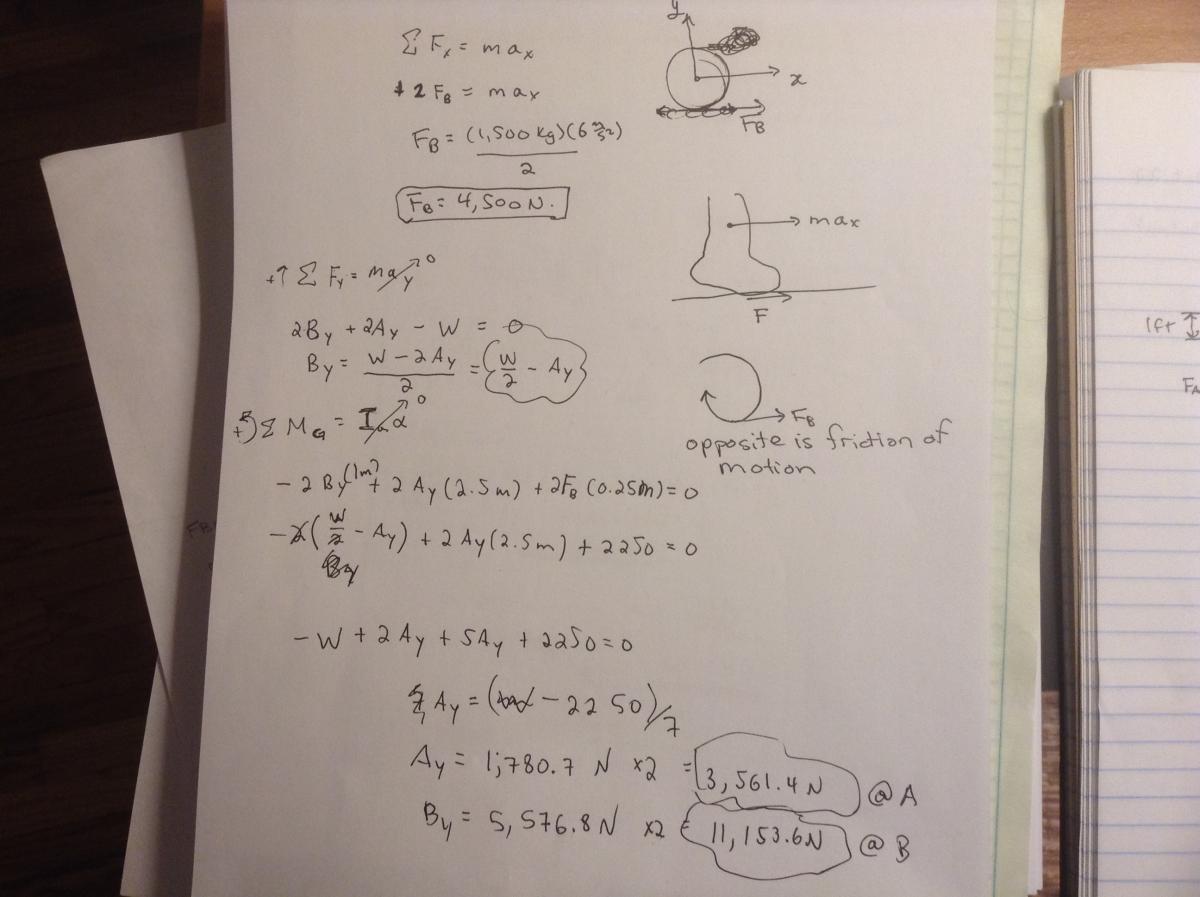 Σ Fx = max
+2 FB = max
FB = (1,500 kg)(6 m/s²)
2
FB = 4,500 N.
y
x
FB
max
F
+↑ Σ Fy = may 0
2By + 2Ay - W = 0
By = W - 2Ay / 2 = W/2 - Ay
+) Σ MG = IG α 0
FB
opposite is friction of
motion
- 2 By(1m) + 2 Ay (2.5m) + 2FB (0.25m) = 0
-2(W/2 - Ay) + 2 Ay (2.5m) + 2250 = 0
By
- W + 2 Ay + 5Ay + 2250 = 0
Ay = (W - 2250)/7
Ay = 1,780.7 N x2 = 3,561.4 N @ A
By = 5,576.8 N x2 = 11,153.6 N @ B
1ft
FA
FB